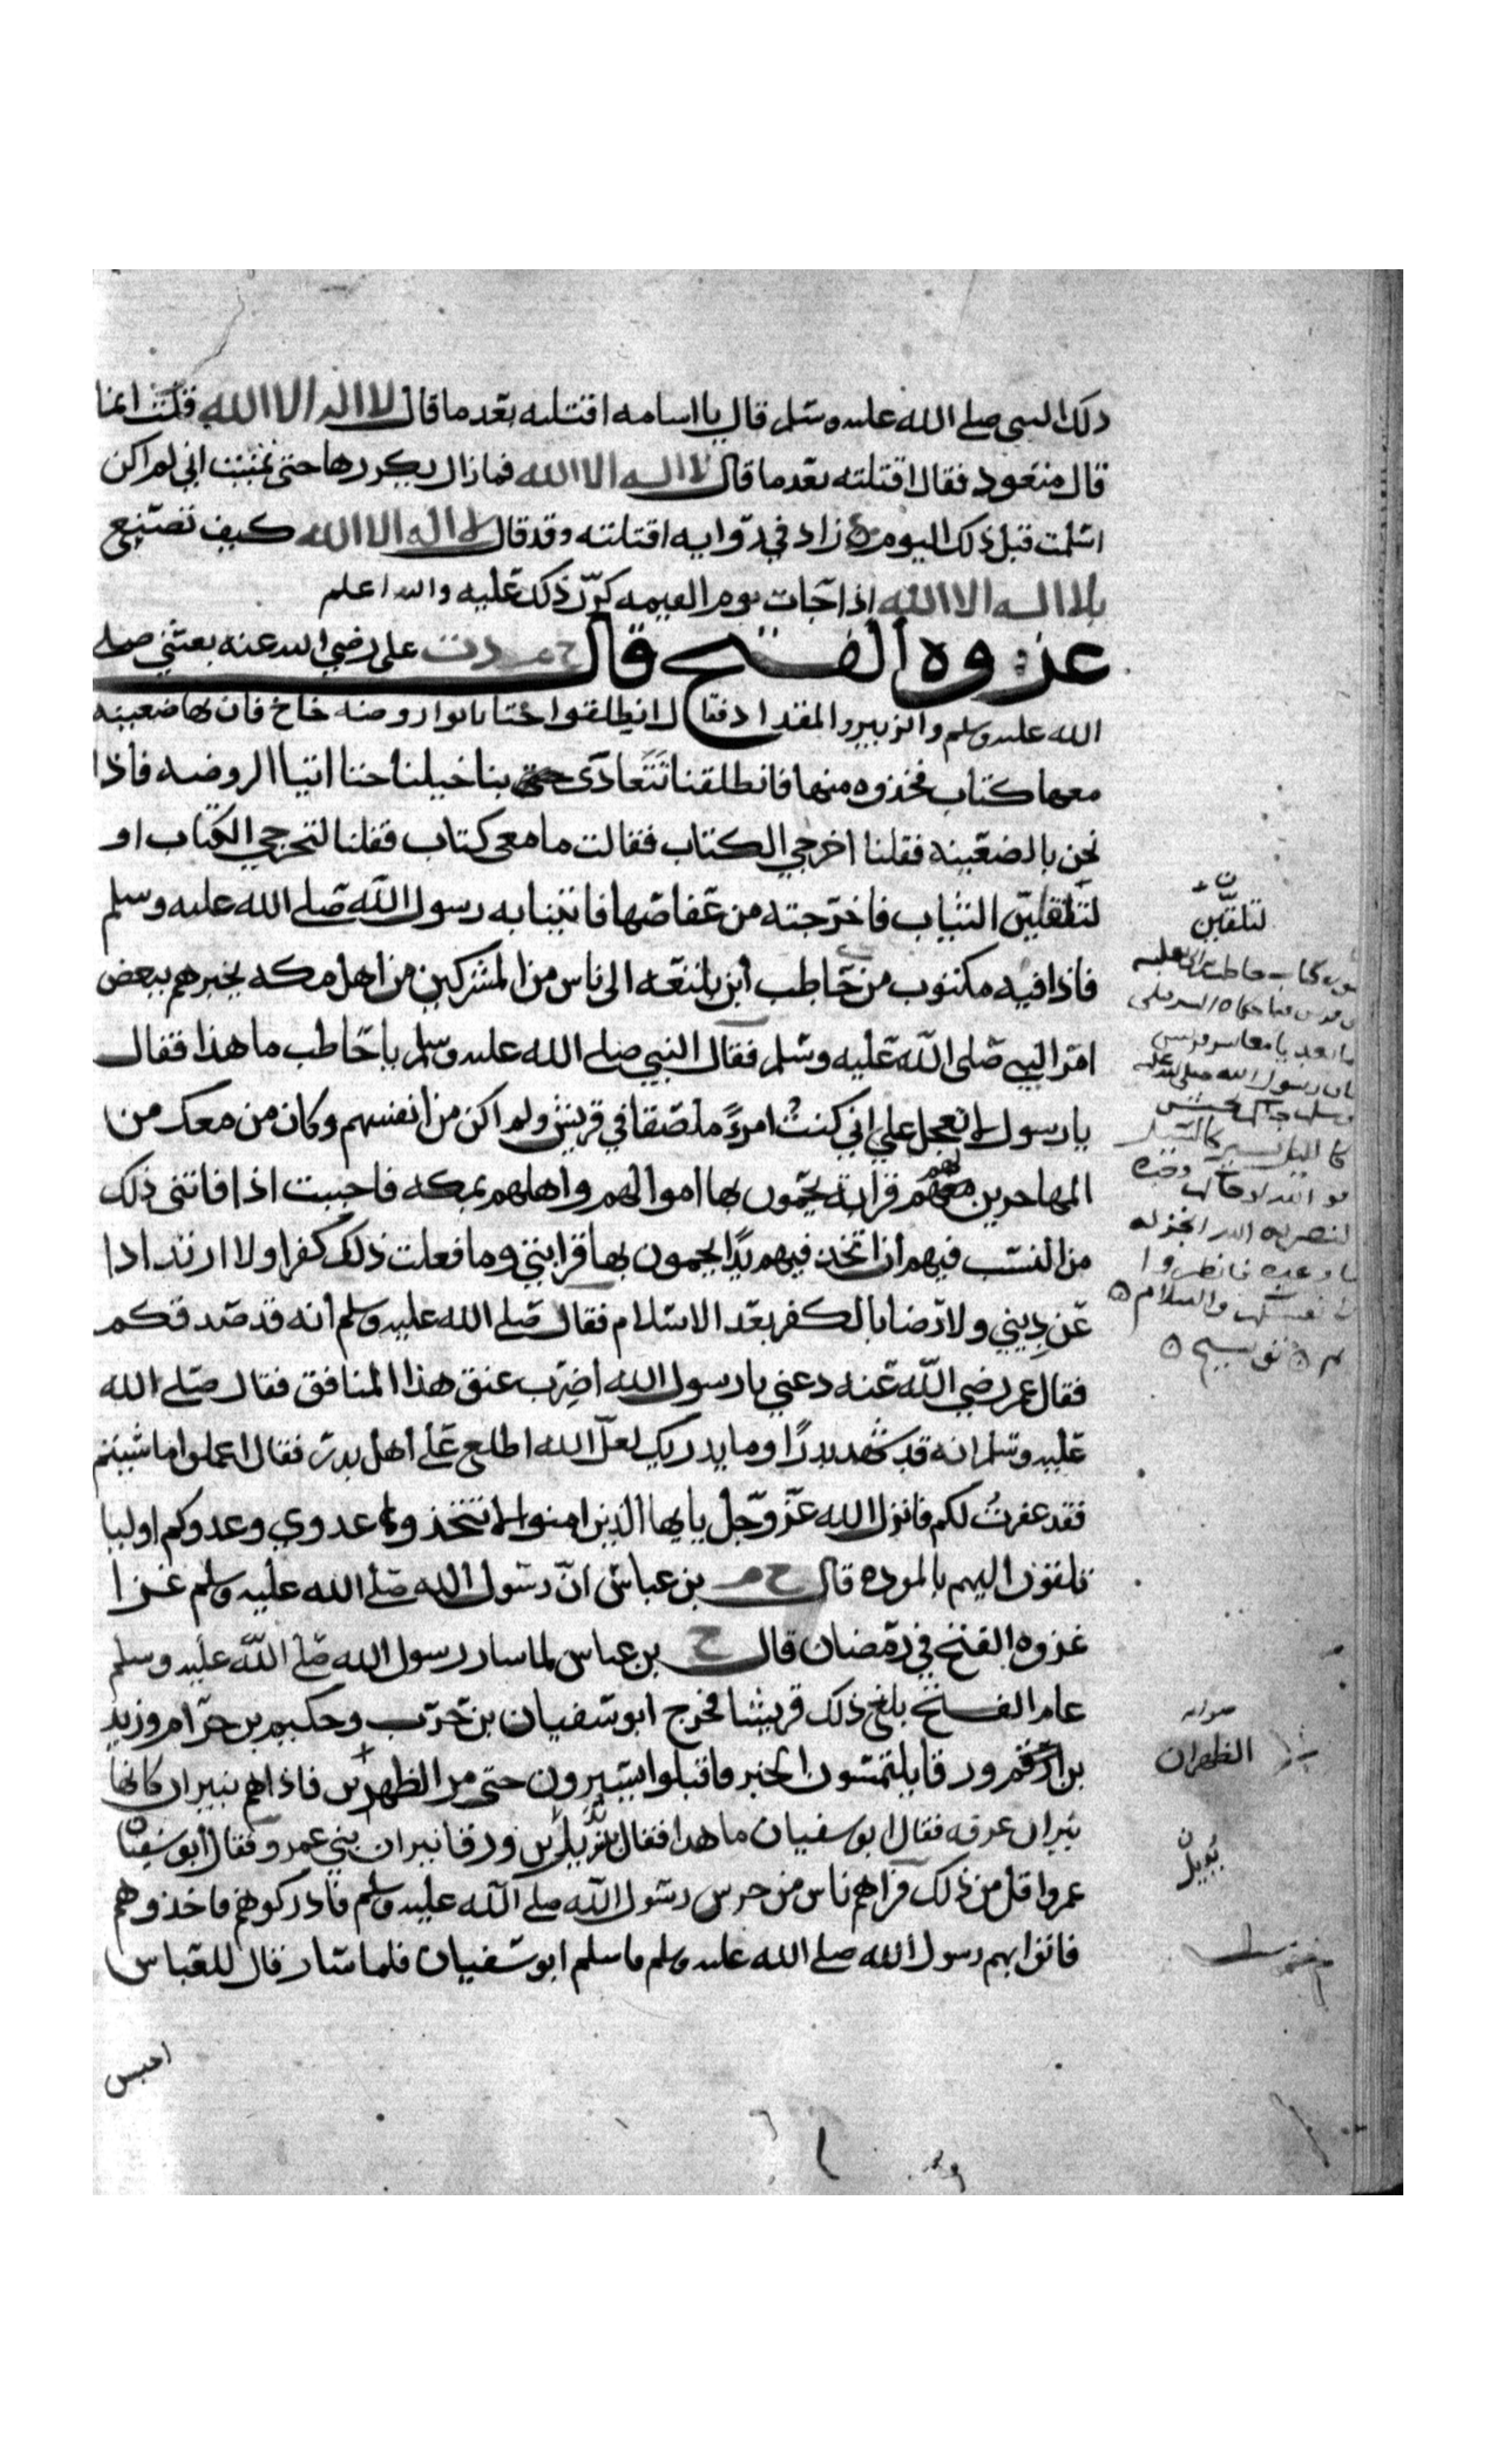 ذلك النبي صلى الله عليه وسلم قال يا اسامه اقتلته بعد ما قال لا اله الا الله فقلت انما
قال متعود فقال اقتلته بعد ما قال لا اله الا الله فمازال يكررها حتى تمنيت اني لم اكن
اسلمت قبل ذلك اليوم زاد في روايه اقتلته وقد قال لا اله الا الله كيف تصنع
بلا اله الا الله اذا جات يوم القيمه كرّر ذلك عليه والله اعلم
غزوه الفتح قال خ م د ت علي رضي الله عنه بعثني صلى
الله عليه وسلم والزبير والمقداد فقال انطلقوا حتا تاتوا روضه خاخ فان بها ضعينه
معها كتاب فخذوه منها فانطلقنا تتعادى بنا خيلنا حتا اتينا الروضه فاذا
نحن بالضعينه فقلنا اخرجي الكتاب فقالت ما معي كتاب فقلنا لتخرجي الكتاب او
لتلقين الثياب فاخرجته من عقاصها فاتينا به رسول الله صلى الله عليه وسلم
فاذا فيه مكتوب من حاطب ابن بلتعه الى ناس من المشركين من اهل مكه يخبرهم ببعض
امر النبي صلى الله عليه وسلم فقال النبي صلى الله عليه وسلم يا حاطب ما هذا فقال
يا رسول لا تعجل علي اني كنت امرءً ملصقا في قريش ولم اكن من انفسهم وكان من معك من
المهاجرين لهم قرابه يحمون بها اموالهم واهلهم بمكه فاحببت اذا فاتني ذلك
من النسب فيهم ان اتخذ فيهم يدًا يحمون بها قرابتي وما فعلت ذلك كفرا ولا ارتدادا
عن ديني ولا رضا بالكفر بعد الاسلام فقال صلى الله عليه وسلم انه قد صدقكم
فقال عمر رضي الله عنه دعني يا رسول الله اضرب عنق هذا المنافق فقال صلى الله
عليه وسلم انه قد شهد بدرًا وما يدريك لعل الله اطلع على اهل بدر فقال اعملوا ما شيتم
فقد غفرت لكم فانزل الله عزّ وجل يايها الذين امنوا لا تتخذوا عدوي وعدوكم اوليا
تلقون اليهم بالموده قال خ م بن عباس انّ رسول الله صلى الله عليه وسلم غزا
غزوه الفتح في رمضان قال خ بن عباس لما سار رسول الله صلى الله عليه وسلم
عام الفتح بلغ ذلك قريشا فخرج ابو سفيان بن حرب وحكيم بن حزام وزيد
بن ارقم ورقا يلتمسون الخبر فاقبلوا يسيرون حتى مر الظهرين فاذا هم بنيران كانها
نيران عرفه فقال ابو سفيان ما هدا فقال بن ورقا نيران بني عمرو فقال ابو سفيان
عمرو اقل من ذلك فراهم ناس من حرس رسول الله صلى الله عليه وسلم فادركوهم فاخذوهم
فاتوا بهم رسول الله صلى الله عليه وسلم فاسلم ابو سفيان فلما سار قال للعباس
احبس
لتلقينّ
كتاب حاطب
اما بعد يا معاشر قريش
فان رسول الله صلى الله عليه
وسلم جاكم بجيش
كالليل يسير كالسيل
فوالله لو جاكم وحده
لنصره الله وانجز له
وعده فانظروا
لانفسكم والسلام
صوابه
الظهران
بُديل